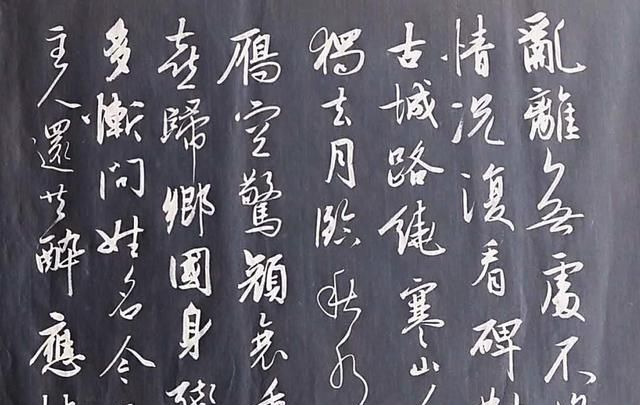 亂離無處不
情況復看碑
古城路繞寒山
獨去月臨秋水
鴈空驚顏衰重
喜歸鄉國身
多慚問姓名今
主人還共醉應